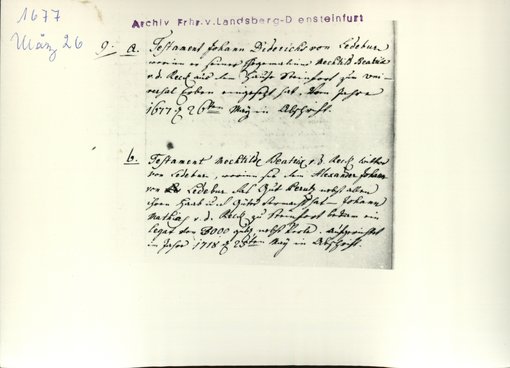 1677
März 26
Archiv Frhr.v.Landsberg-D ensteinfurt
9. a. Testament Johann Diderichs von Ledebur
worin er seiner Ehegemahlin Mechtild Beatrix
v. d. Reck aus dem Hause Steinfort zur uni-
versal Erbin eingesetzt hat. Vom Jahre
1677 d 26ten May in Abschrift.
b. Testament Mechtilde Beatrix v. d. Reck Wittwe
von Ledebur, worin sie dem Alexander Johan
von Ledebur das Gut nebst allen
ihren Haab und Güter vermacht hat — Johann
Mathias v. d. Reck zu Steinfort bekam ein
legat von 3000 nebst . Ausgerichtet
im Jahre 1718 d 25ten May in Abschrift.